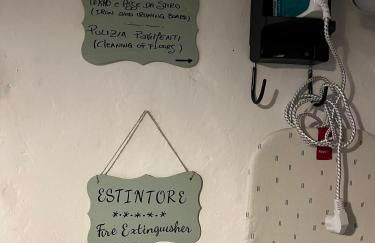 FERRO e ASSE DA STIRO
(IRON AND IRONING BOARD)
PULIZIA PAVIMENTI
(CLEANING OF FLOORS)
ESTINTORE
Fire Extinguisher